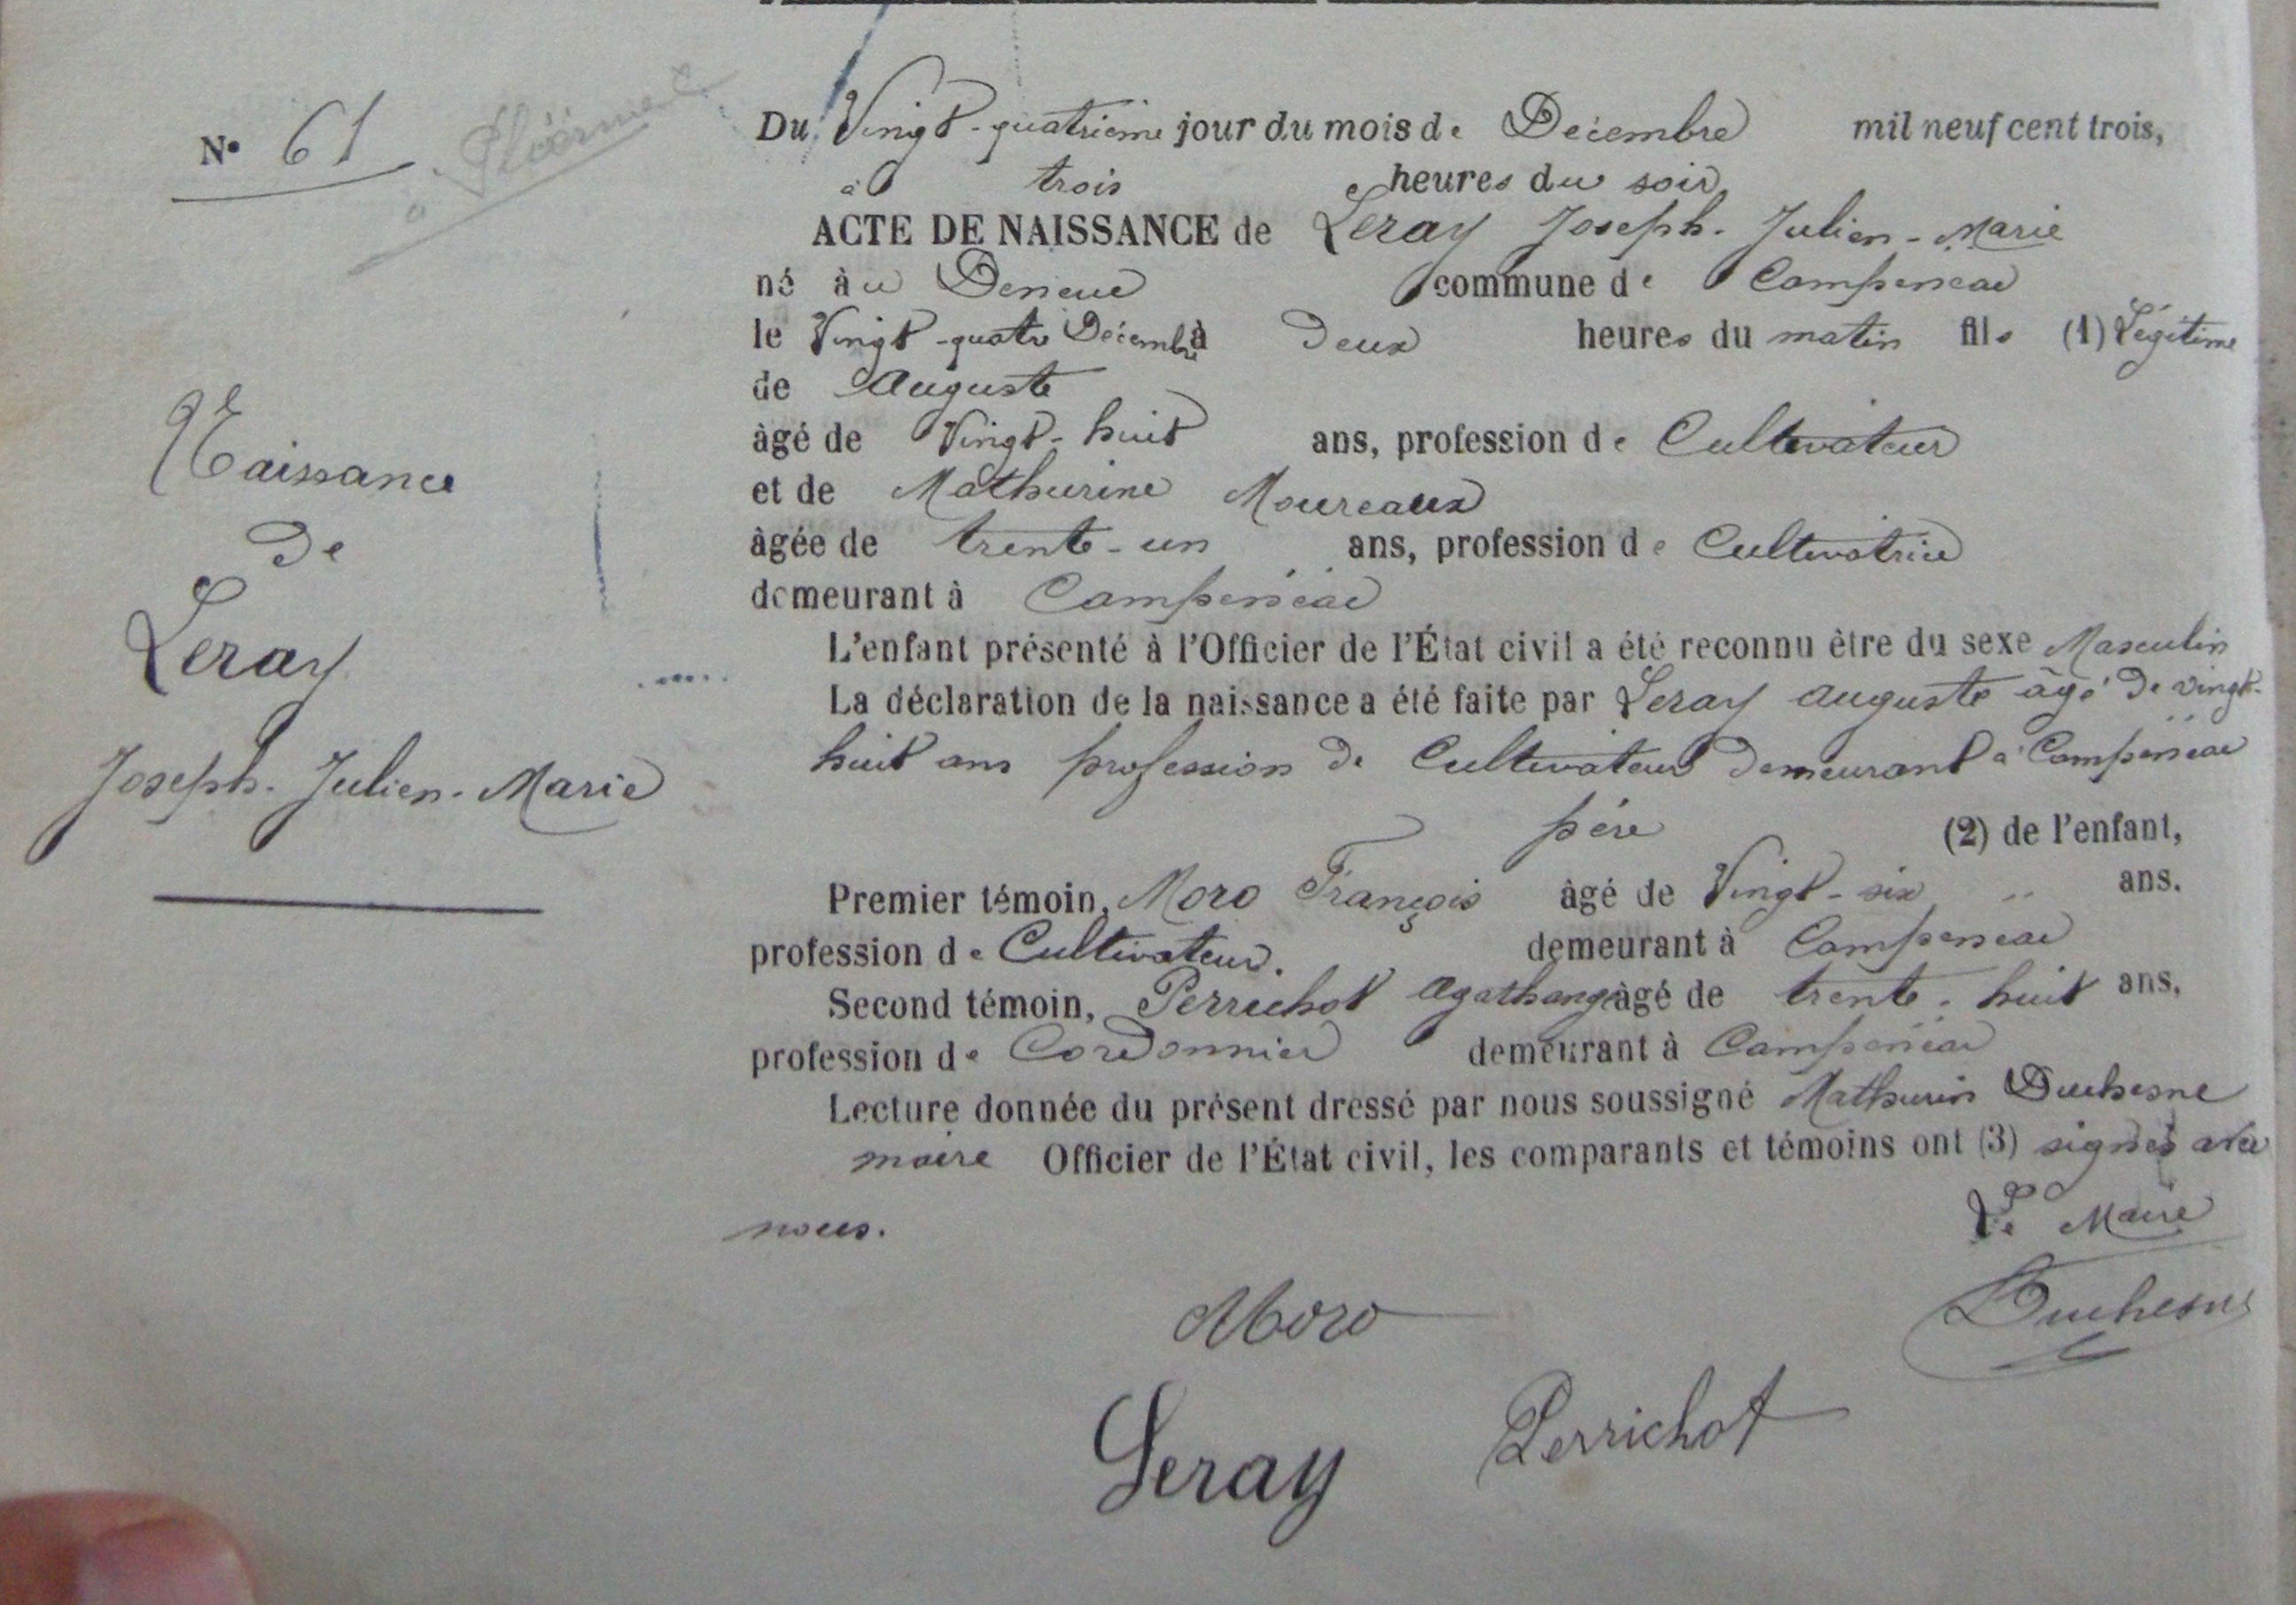 N° 61
à Ploërmel
Naissance
de
Leray
Joseph-Julien-Marie
Du Vingt-quatrième jour du mois de Décembre mil neuf cent trois,
à trois heures du soir
ACTE DE NAISSANCE de Leray Joseph-Julien-Marie
né àu commune de Campénéac
le Vingt-quatre Décembre à Deux heures du matin fils (1) Légitime
de Auguste
âgé de Vingt-huit ans, profession de Cultivateur
et de Mathurine Moureaux
âgée de trente-un ans, profession de Cultivatrice
demeurant à Campénéac
L'enfant présenté à l'Officier de l'État civil a été reconnu être du sexe Masculin
La déclaration de la naissance a été faite par Leray Auguste âgé de vingt-
huit ans profession de Cultivateur demeurant à Campénéac
père (2) de l'enfant,
Premier témoin, Moro François âgé de Vingt-six ans.
profession de Cultivateur. demeurant à Campénéac
Second témoin, Perrichot Agathange âgé de trente-huit ans,
profession de Cordonnier demeurant à Campénéac
Lecture donnée du présent dressé par nous soussigné Mathurin Duchesne
maire Officier de l'État civil, les comparants et témoins ont (3) signés avec
nous.
Le Maire
Moro
Duchesne
Leray
Perrichot